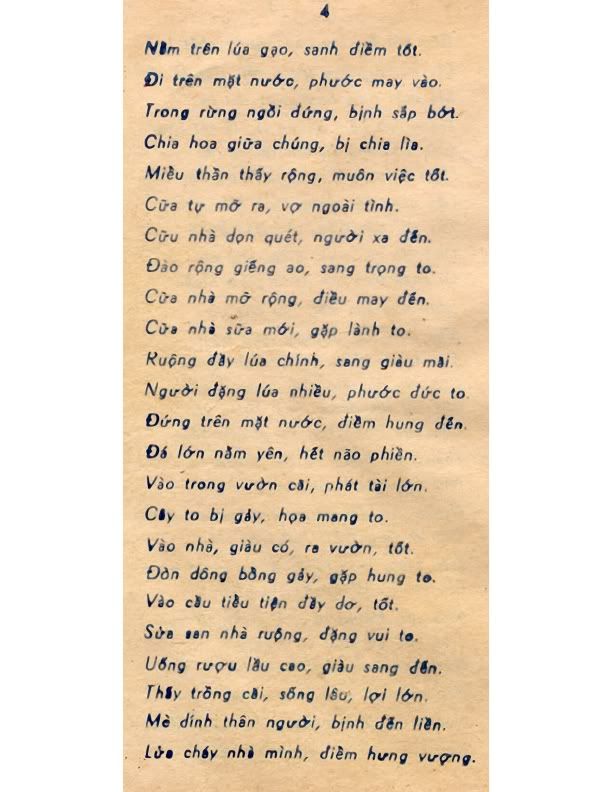 4
Nằm trên lúa gạo, sanh điềm tốt.
Đi trên mặt nước, phước may vào.
Trong rừng ngồi đứng, bịnh sắp bớt.
Chia hoa giữa chúng, bị chia lìa.
Miễu thần thấy rộng, muôn việc tốt.
Cữa tự mỡ ra, vợ ngoài tình.
Cữu nhà dọn quét, người xa đến.
Đào rộng giếng ao, sang trọng to.
Cữa nhà mỡ rộng, điều may đến.
Cữa nhà sữa mới, gặp lành to.
Ruộng đầy lúa chính, sang giàu mãi.
Người đặng lúa nhiều, phước đức to.
Đứng trên mặt nước, điềm hung đến.
Đá lớn nằm yên, hết não phiền.
Vào trong vườn cãi, phát tài lớn.
Cây to bị gảy, họa mang to.
Vào nhà, giàu có, ra vườn, tốt.
Đòn dông bỗng gảy, gặp hung to.
Vào cầu tiểu tiện đầy dơ, tốt.
Sửa san nhà ruộng, đặng vui to.
Uống rượu lầu cao, giàu sang đến.
Thấy trồng cải, sống lâu, lợi lớn.
Mè dính thân người, bịnh đến liền.
Lửa cháy nhà mình, điềm hưng vượng.